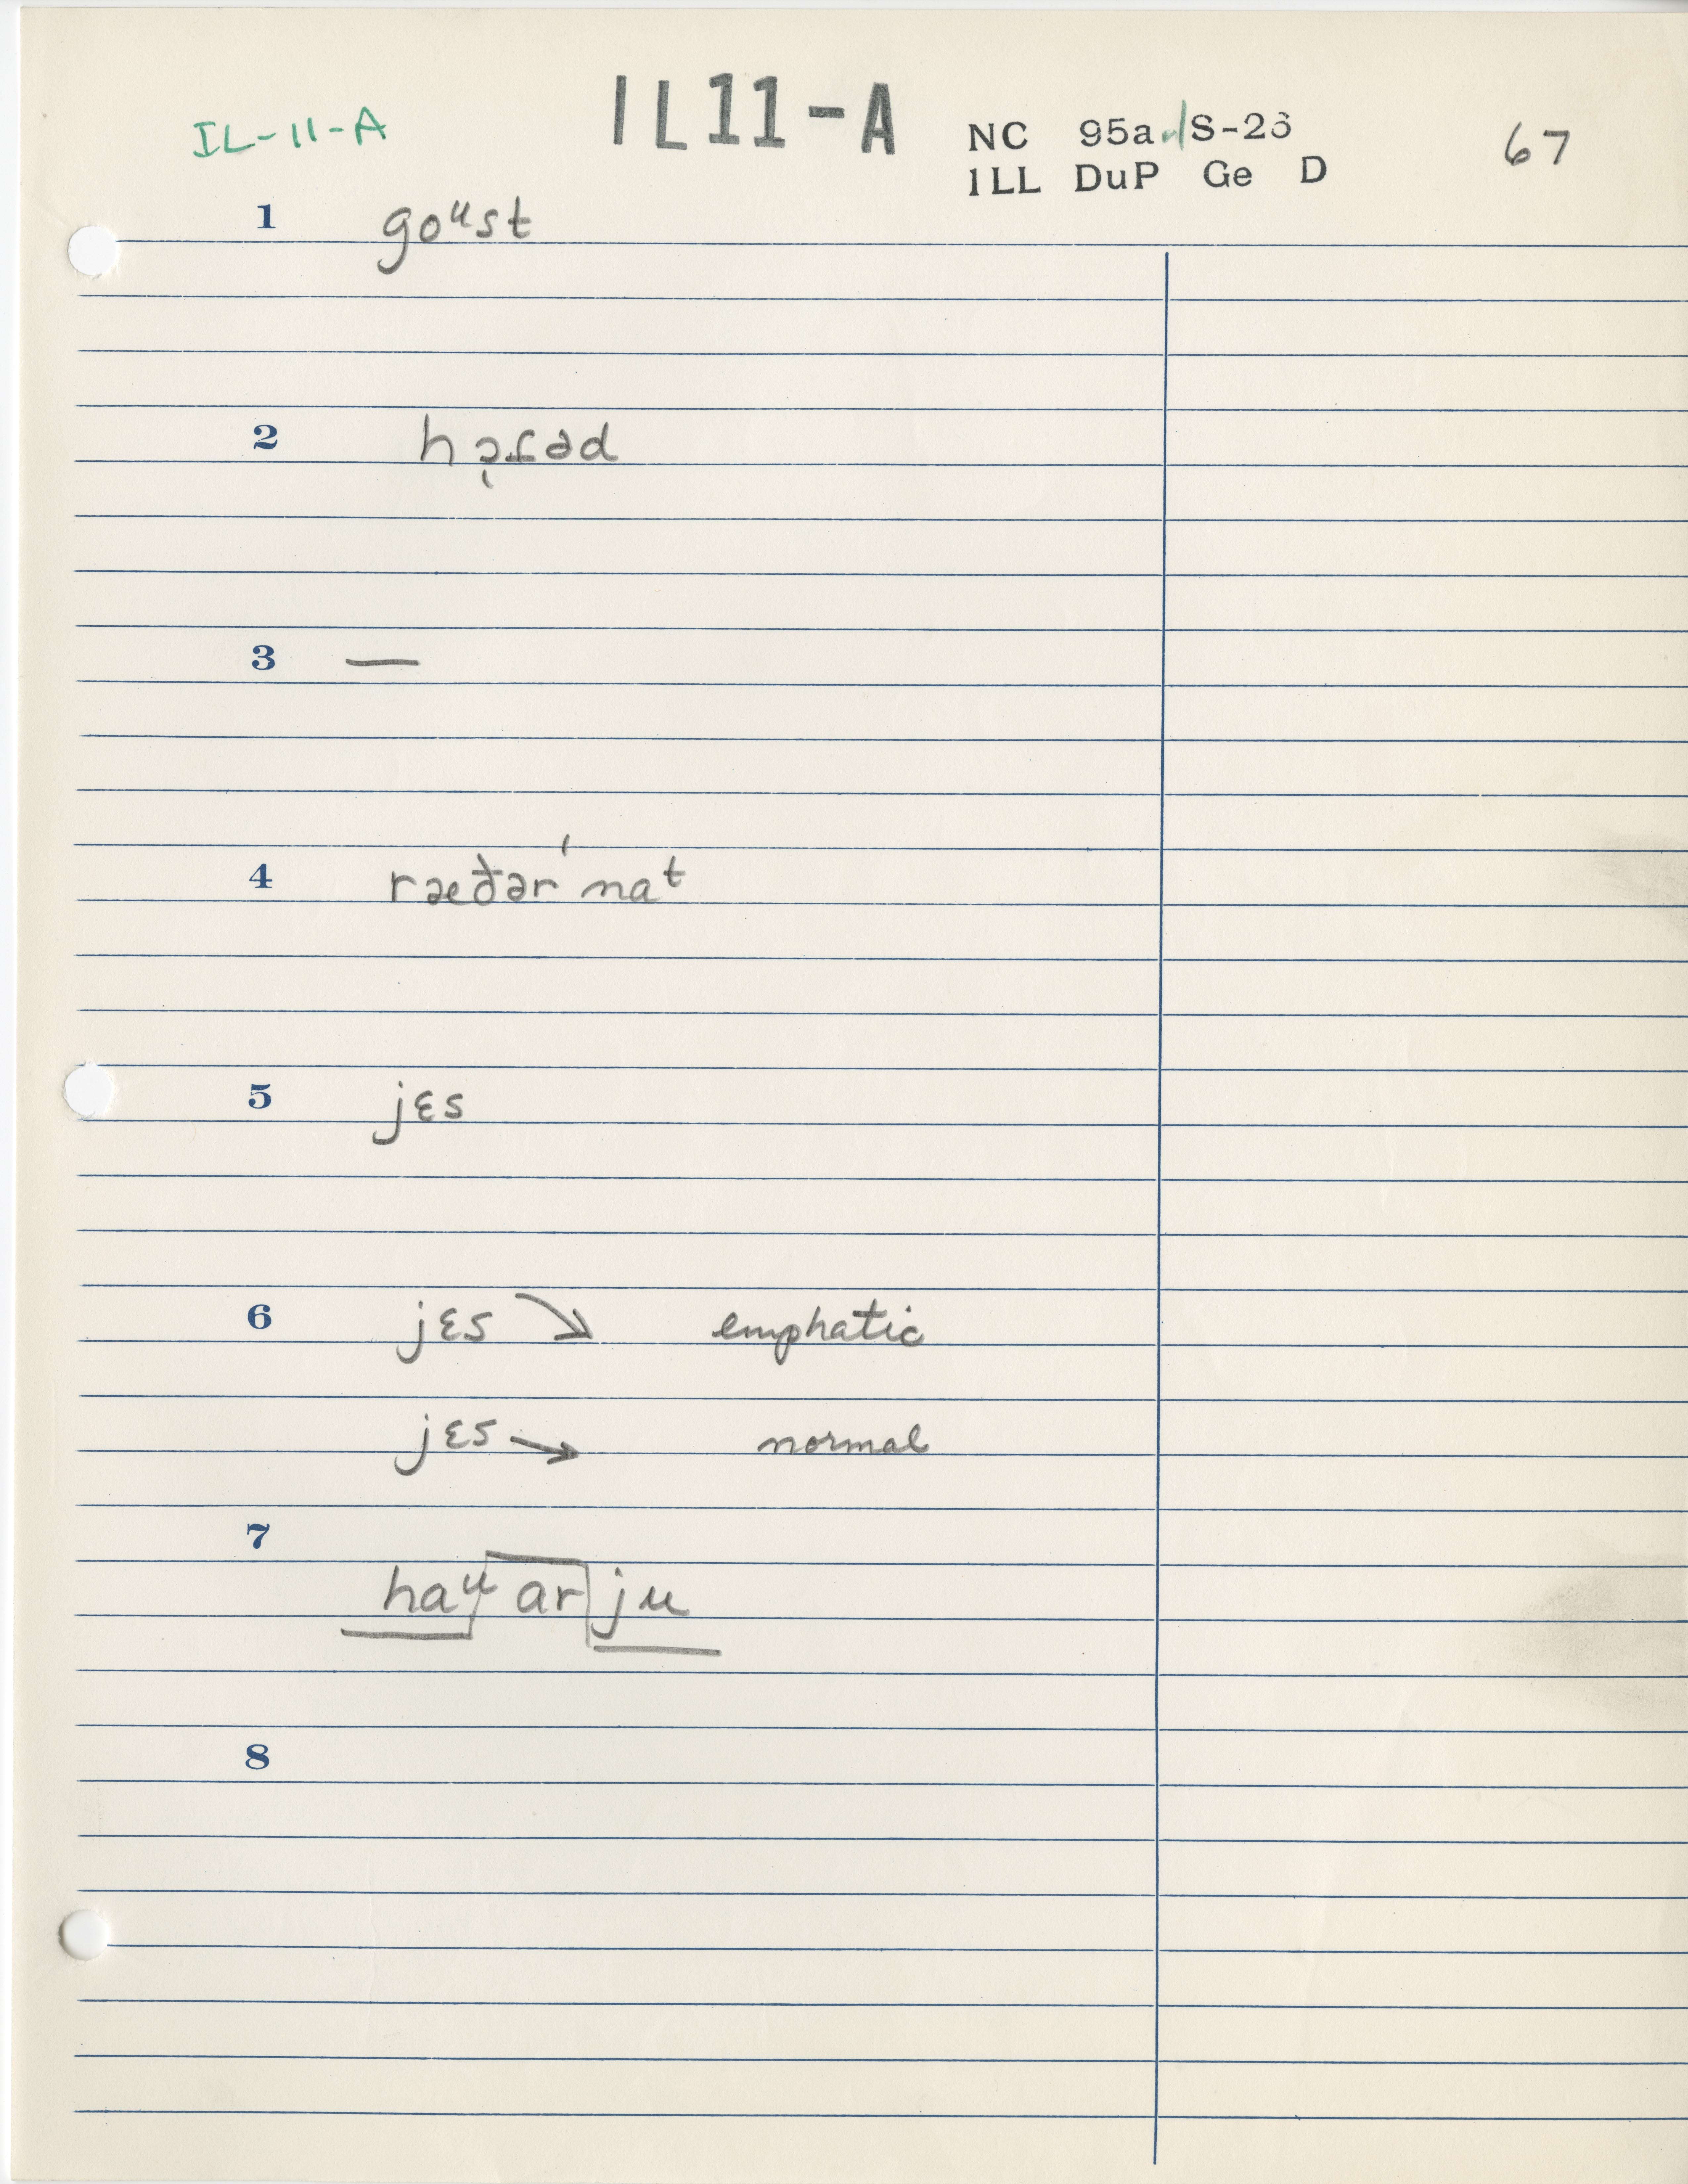 IL-11-A
IL11-A
NC 95a S-26
ILL DuP Ge D
67
1 goᵘst
2
3 —
4 ræðər ˈnaᵗ
5 jɛs
6 jɛs ↘ emphatic
jɛs → normal
7
haᵘ ar ju
8